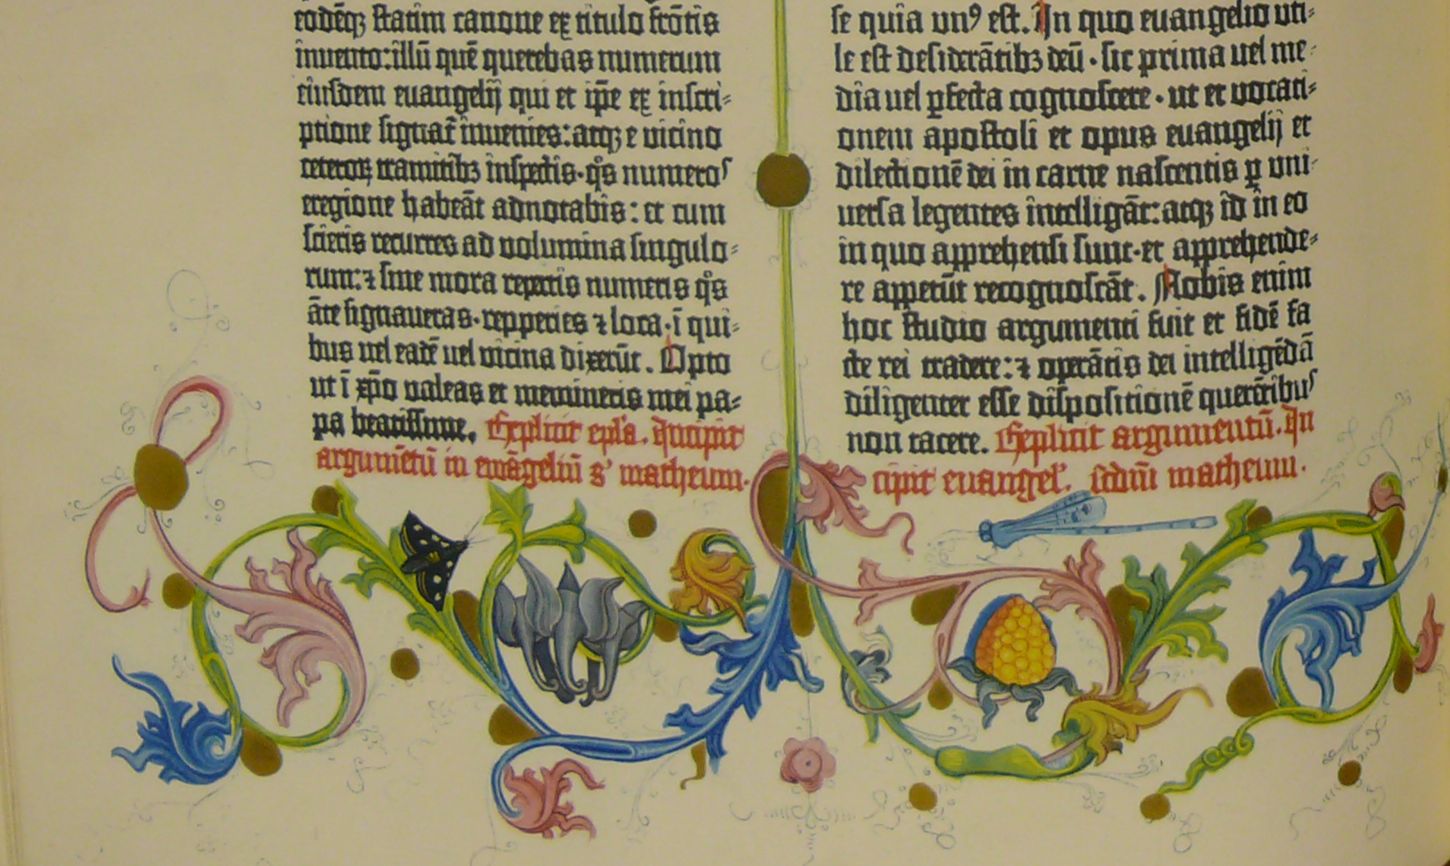 eodēqꝫ statim canone ex titulo frōtis
inuento: illū quē querebas numerum
eiusdem euangelij qui et ip̄e ex inscri-
ptione signat̄ inuenies: atqꝫ e vicino
ceteroꝝ tramitibꝫ inspectis · q°s numeros
eregione habeāt adnotabis: et cum
scieris recurres ad volumina singulo-
rum: ⁊ sine mora repertis numeris q°s
āte signaueras · repperies ⁊ loca · ī qui-
bus vel eadē vel vicina dixerūt. Opto
ut ī xp̄o valeas et memineris mei pa-
pa beatissime. Explicit ep̄la. Incipit
argumētū in euāgeliū s' matheum.
se quia unꝰ est. In quo euangelio uti-
le est desiderātibꝫ deū · sic prima uel me-
dia uel ꝑfecta cognoscere · ut et vocati-
onem apostoli et opus euangelij et
dilectionē dei in carne nascentis ꝑ uni-
uersa legentes intelligāt: atqꝫ id in eo
in quo apprehensi sunt · et apprehende-
re appetūt recognoscāt. Nobis enim
hoc studio argumenti fuit et fidē fa
cte rei tradere: ⁊ operātis dei intelligēdā
diligenter esse dispositionē querētibus
non tacere. Explicit argumentū. In
cipit euangel'. scd̄m matheum.